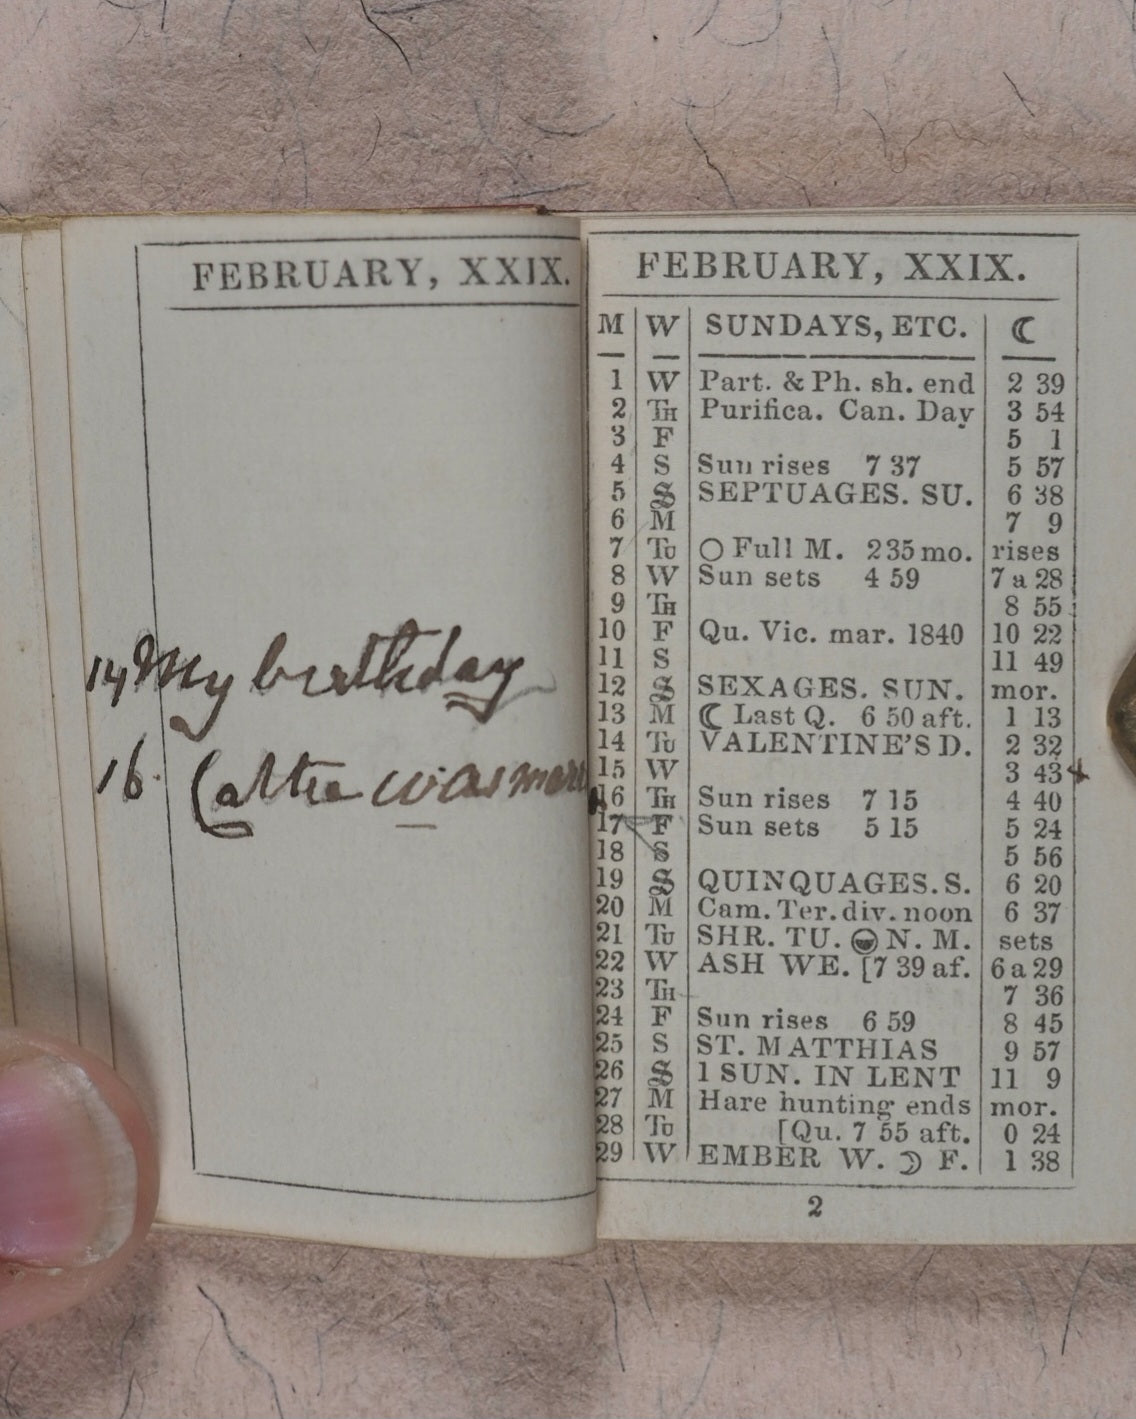 FEBRUARY, XXIX.
14 My birthday
16. was
FEBRUARY, XXIX.
M W SUNDAYS, ETC. ☾
1 W Part. & Ph. sh. end 2 39
2 TH Purifica. Can. Day 3 54
3 F 5 1
4 S Sun rises 7 37 5 57
5 S SEPTUAGES. SU. 6 38
6 M 7 9
7 TU ○ Full M. 2 35 mo. rises
8 W Sun sets 4 59 7 a 28
9 TH 8 55
10 F Qu. Vic. mar. 1840 10 22
11 S 11 49
12 S SEXAGES. SUN. mor.
13 M ☾ Last Q. 6 50 aft. 1 13
14 TU VALENTINE'S D. 2 32
15 W 3 43
16 TH Sun rises 7 15 4 40
17 F Sun sets 5 15 5 24
18 S 5 56
19 S QUINQUAGES. S. 6 20
20 M Cam. Ter. div. noon 6 37
21 TU SHR. TU. N. M. sets
22 W ASH WE. [7 39 af. 6 a 29
23 TH 7 36
24 F Sun rises 6 59 8 45
25 S ST. MATTHIAS 9 57
26 S 1 SUN. IN LENT 11 9
27 M Hare hunting ends mor.
28 TU [Qu. 7 55 aft. 0 24
29 W EMBER W. ☽ F. 1 38
2